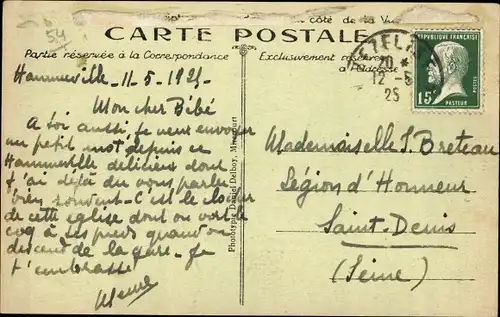 54
côté de la Vue
CARTE POSTALE
Partie réservée à la Correspondance
Exclusivement réservé
à l'Adresse
Hammeville 11-5-1925
Mon cher Bébé
A toi aussi, je veux envoyer
un petit mot depuis ce
Hammeville délicieux dont
je t'ai déjà du vous parler
bien souvent - C'est le
de cette église dont on voit le
coq à ses pieds quand on
descend de la gare. Je
t'embrasse
Phototypie Daniel Delboy, Mirecourt
VEZELISE
20 *
12 - 5
25
REPUBLIQUE FRANÇAISE
POSTES
15c
PASTEUR
Mademoiselle S. Breteau
Légion d'Honneur
Saint-Denis
(Seine)